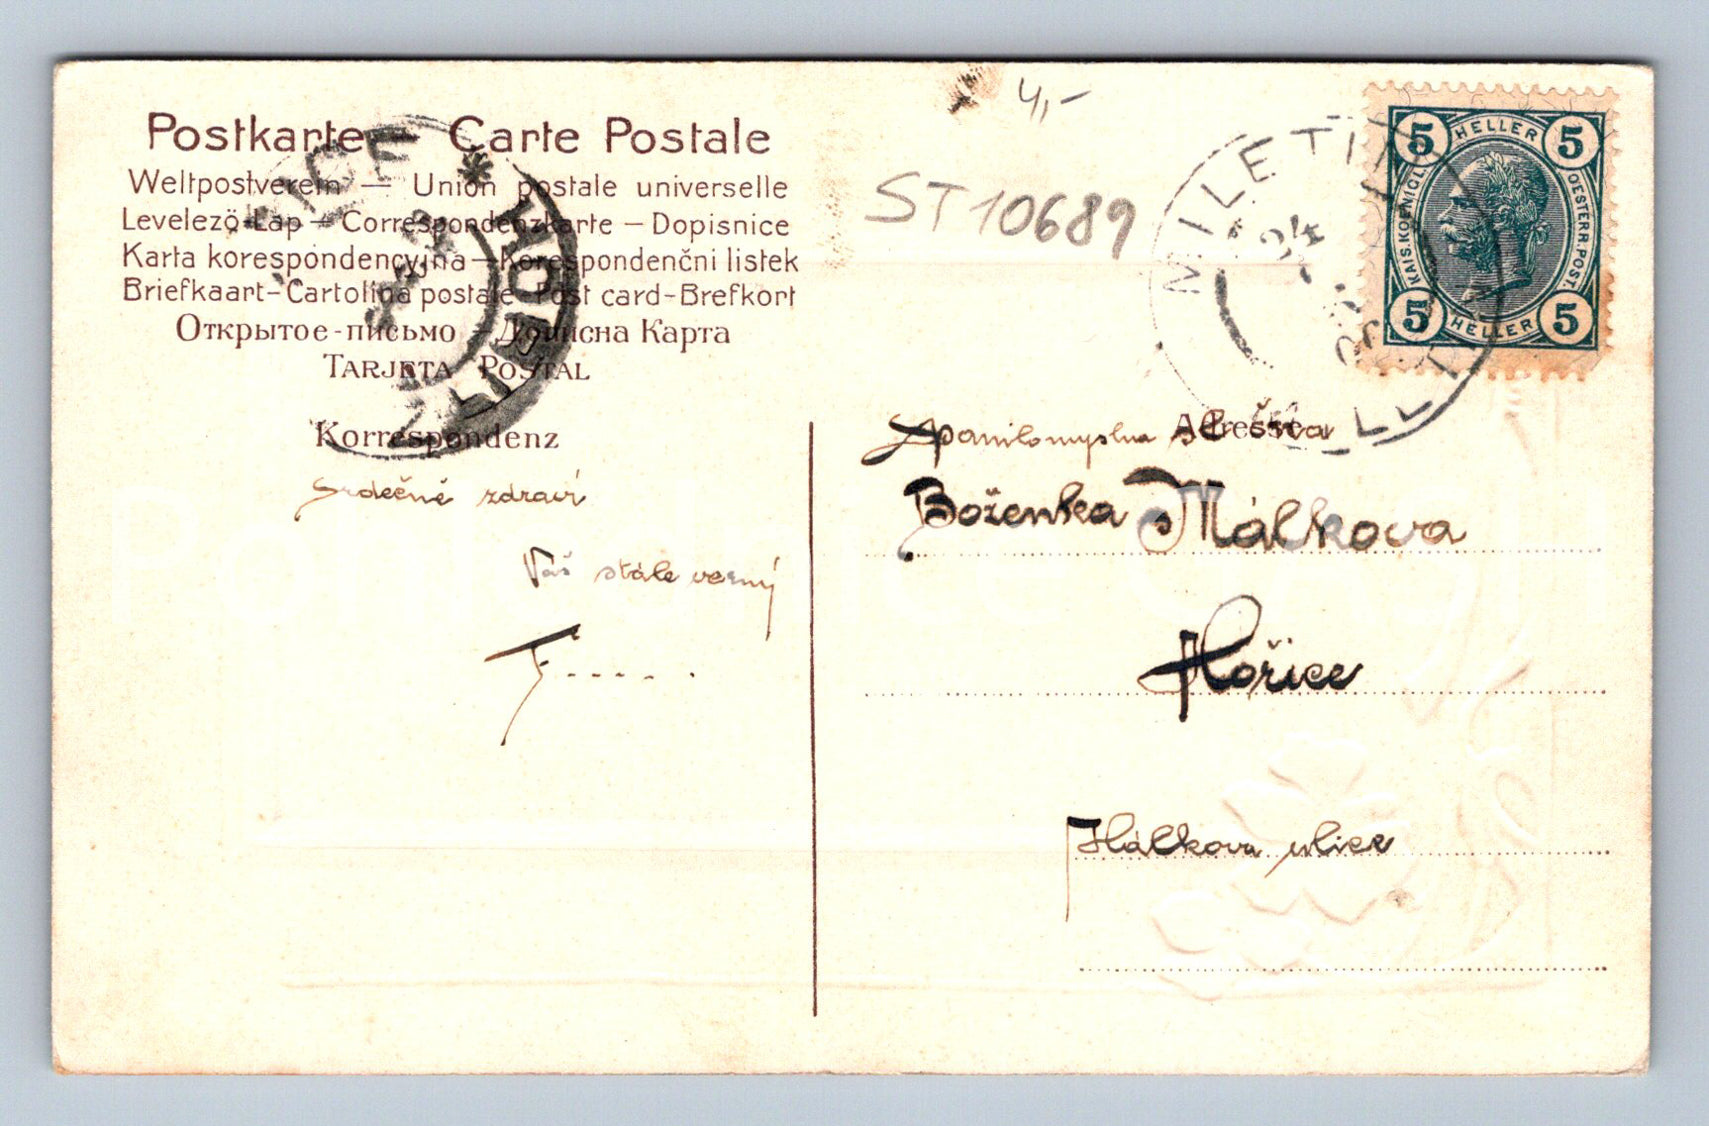 Postkarte — Carte Postale
Weltpostverein — Union postale universelle
Levelező-Lap — Correspondenzkarte — Dopisnice
Karta korespondencyjna — Korespondenční listek
Briefkaart - Cartolina postale - Post card - Brefkort
Открытое-письмо — Дописна Карта
TARJETA POSTAL
Korrespondenz
Srdečně zdraví
Váš stále verný
F.....
4,-
ST10689
MILETIN
5 HELLER 5
KAIS. KOENIGL. OESTERR. POST.
5 HELLER 5
Adresse
Boženka Málkova
Hořice
Hálkova ulice